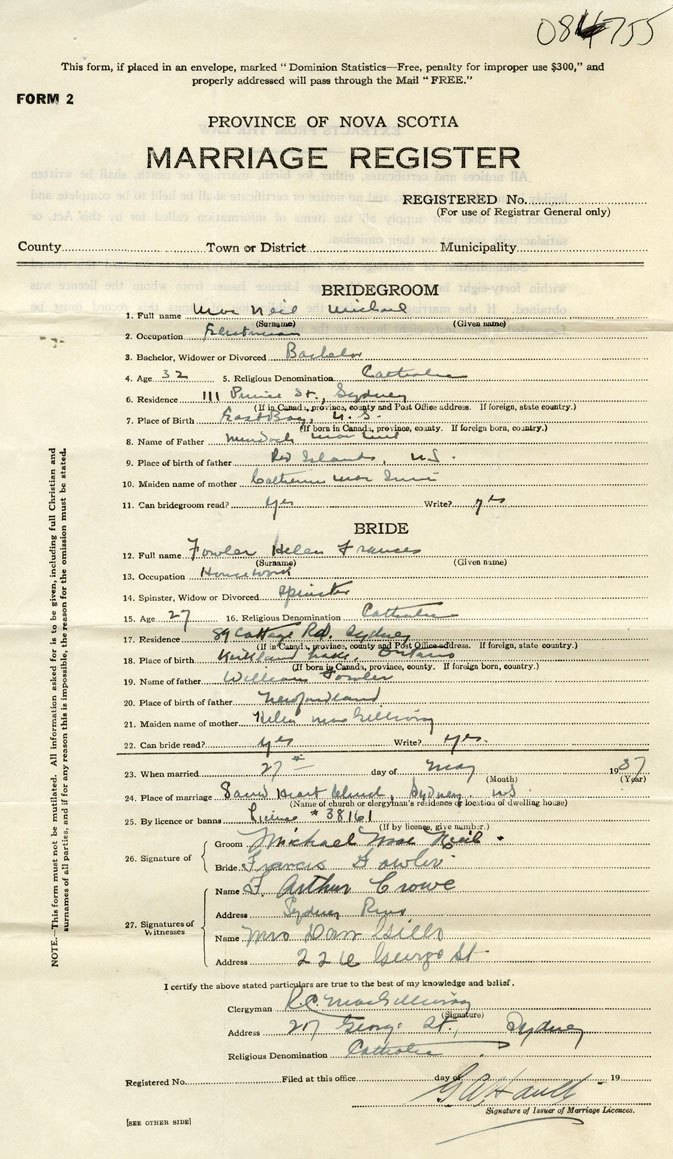 084755
This form, if placed in an envelope, marked "Dominion Statistics—Free, penalty for improper use $300," and
properly addressed will pass through the Mail "FREE."
FORM 2
PROVINCE OF NOVA SCOTIA
MARRIAGE REGISTER
REGISTERED No.
(For use of Registrar General only)
County Town or District Municipality
BRIDEGROOM
1. Full name Mac Neil Michael
(Surname) (Given name)
2. Occupation
3. Bachelor, Widower or Divorced Bachelor
4. Age 32 5. Religious Denomination Catholic
6. Residence 111 Prince St., Sydney
(If in Canada, province, county and Post Office address. If foreign, state country.)
7. Place of Birth East Bay, N.S.
(If born in Canada, province, county. If foreign born, country.)
8. Name of Father Murdoch Mac Neil
9. Place of birth of father Red Islands, N.S.
10. Maiden name of mother Catherine Mac
11. Can bridegroom read? yes Write? yes
BRIDE
12. Full name Fowler Helen Frances
(Surname) (Given name)
13. Occupation Housework
14. Spinster, Widow or Divorced Spinster
15. Age 27 16. Religious Denomination Catholic
17. Residence 89 Cottage Rd. Sydney
(If in Canada, province, county and Post Office address. If foreign, state country.)
18. Place of birth Lake, Ontario
(If born in Canada, province, county. If foreign born, country.)
19. Name of father William Fowler
20. Place of birth of father Newfoundland
21. Maiden name of mother Helen Mac Gillivray
22. Can bride read? yes Write? yes.
23. When married 27th day of May 1937
(Month) (Year)
24. Place of marriage Sacred Heart Church, Sydney N.S.
(Name of church or clergyman's residence or location of dwelling house)
25. By licence or banns License # 38161
(If by licence, give number.)
26. Signature of
Groom Michael Mac Neil
Bride Francis Fowler
27. Signatures of Witnesses
Name F. Arthur Crowe
Address Sydney River
Name Mrs Dan Gillis
Address George St.
I certify the above stated particulars are true to the best of my knowledge and belief.
Clergyman R.C. MacGillivray
(Signature)
Address 207 George St., Sydney
Religious Denomination Catholic
Registered No. Filed at this office day of 19
Signature of Issuer of Marriage Licences.
[SEE OTHER SIDE]
NOTE.—This form must not be mutilated. All information asked for is to be given, including full Christian and
surnames of all parties, and if for any reason this is impossible, the reason for the omission must be stated.